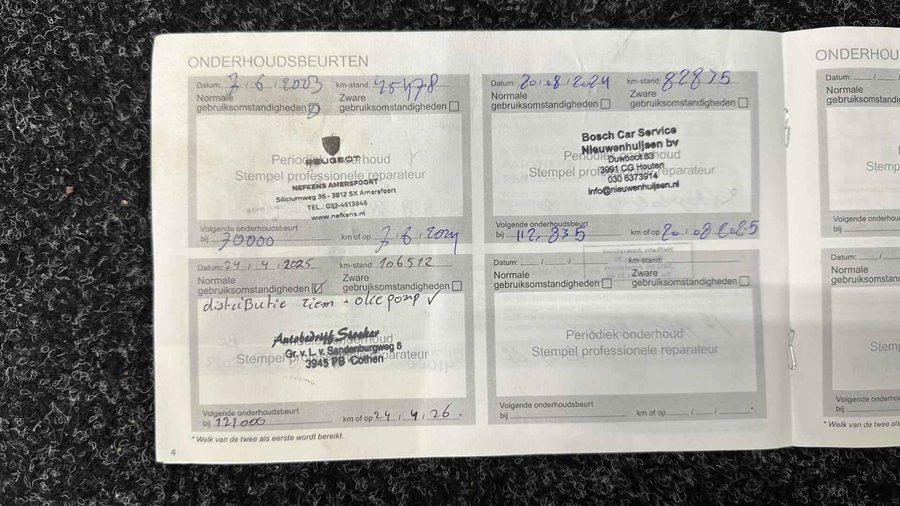 ONDERHOUDSBEURTEN
Datum: 7, 6, 2023 km-stand:
Normale gebruiksomstandigheden
Zware gebruiksomstandigheden
PEUGEOT
Periodiek onderhoud
Stempel professionele reparateur
NEFKENS AMERSFOORT
Siliciumweg 36 - 3812 SX Amersfoort
TEL.: 033-4613846
www.nefkens.nl
Volgende onderhoudsbeurt
bij 70000 km of op 7, 6, 2024
Datum: 20, 08, 2024 km-stand: 82835
Normale gebruiksomstandigheden
Zware gebruiksomstandigheden
Bosch Car Service
Nieuwenhuijsen bv
Periodiek onderhoud
Duwboot 83
Stempel professionele reparateur
3991 CG Houten
030 6373914
info@nieuwenhuijsen.nl
Volgende onderhoudsbeurt
bij 112,835 km of op 20, 08 2025
Datum: 24, 4, 2025 km-stand: 106512
Normale gebruiksomstandigheden
Zware gebruiksomstandigheden
distributie riem + olie pomp ✓
Autobedrijf
Gr. v. L. v. Sandenburgweg 8
Stempel professionele reparateur
3945 PB Cothen
Volgende onderhoudsbeurt
bij 121000 km of op 24, 4, 26.
Datum: / / km-stand:
Normale gebruiksomstandigheden
Zware gebruiksomstandigheden
Periodiek onderhoud
Stempel professionele reparateur
Volgende onderhoudsbeurt
bij km of op / /
* Welk van de twee als eerste wordt bereikt.
4
ONDERHOU
Datum: / /
Normale
gebruiksomstandig
Volgende onderhouds
bij
Datum: / /
Normale
gebruiksomstandig
Stemp
Volgende onderhouds
bij
* Welk van de twee als e